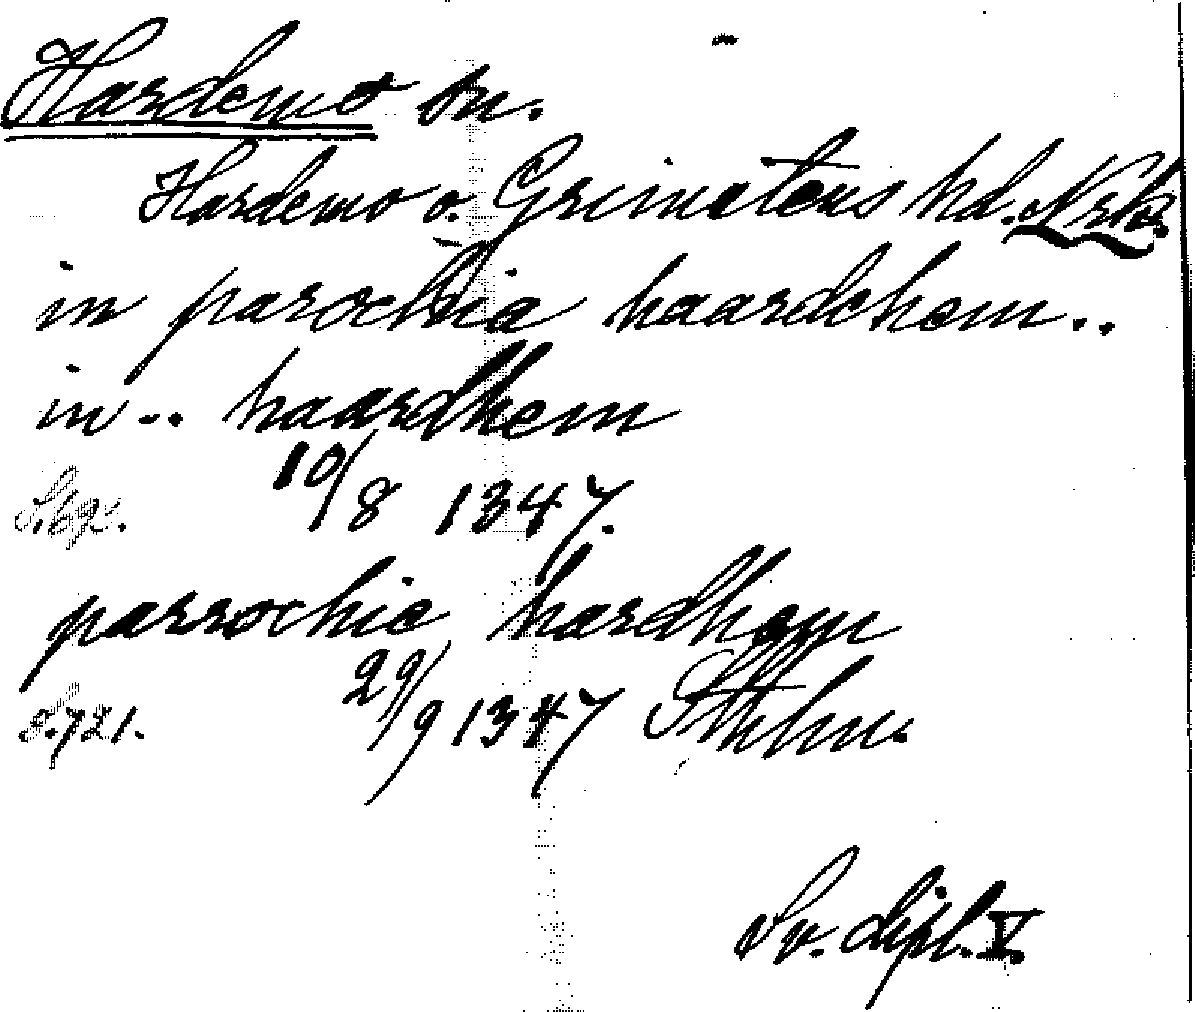 Hardemo sn.
Hardemo o. Grimstens hd. Nrk.
in parochia haardehem..
in .. haardhem
10/8 1347.
parrochie hardhem
S. 721. 29/9 1347 Sthlm.
Sv. dipl. V.